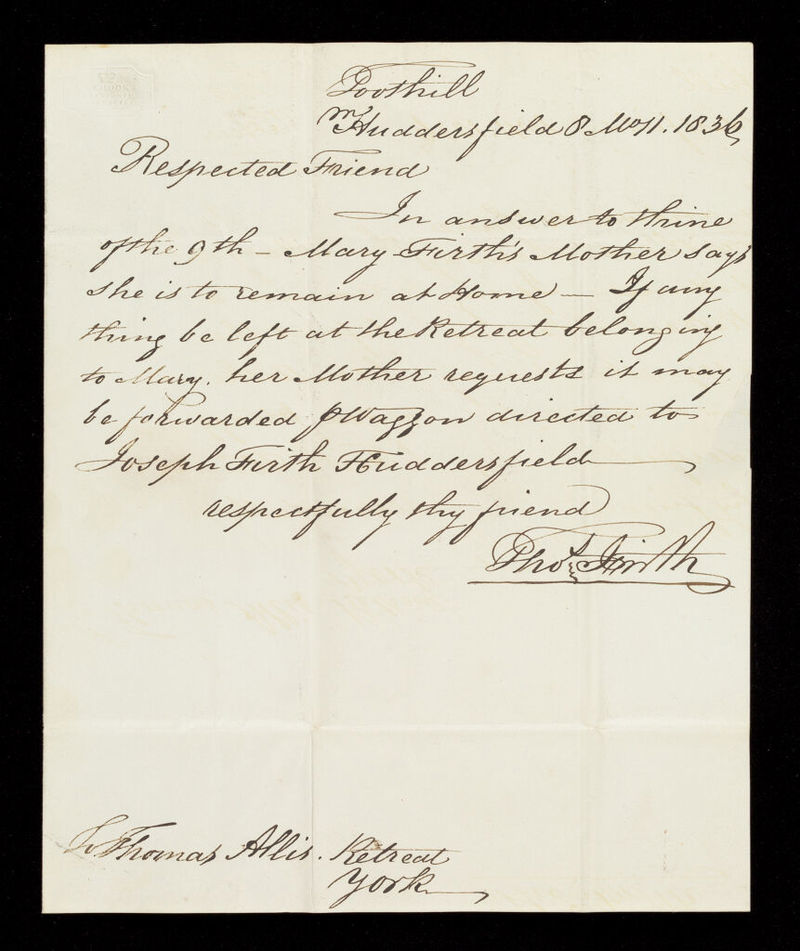 Toothill
nr Huddersfield 8 Mo 11. 1836
Respected Friend
In answer to thine
of the 9th - Mary Firth's Mother says
she is to remain at Home — If any
thing be left at the Retreat belonging
to Mary. her Mother requests it may
be forwarded ⅌ Waggon directed to
Joseph Firth Huddersfield
respectfully thy friend
Thos. Firth
To Thomas Allis. Retreat
York